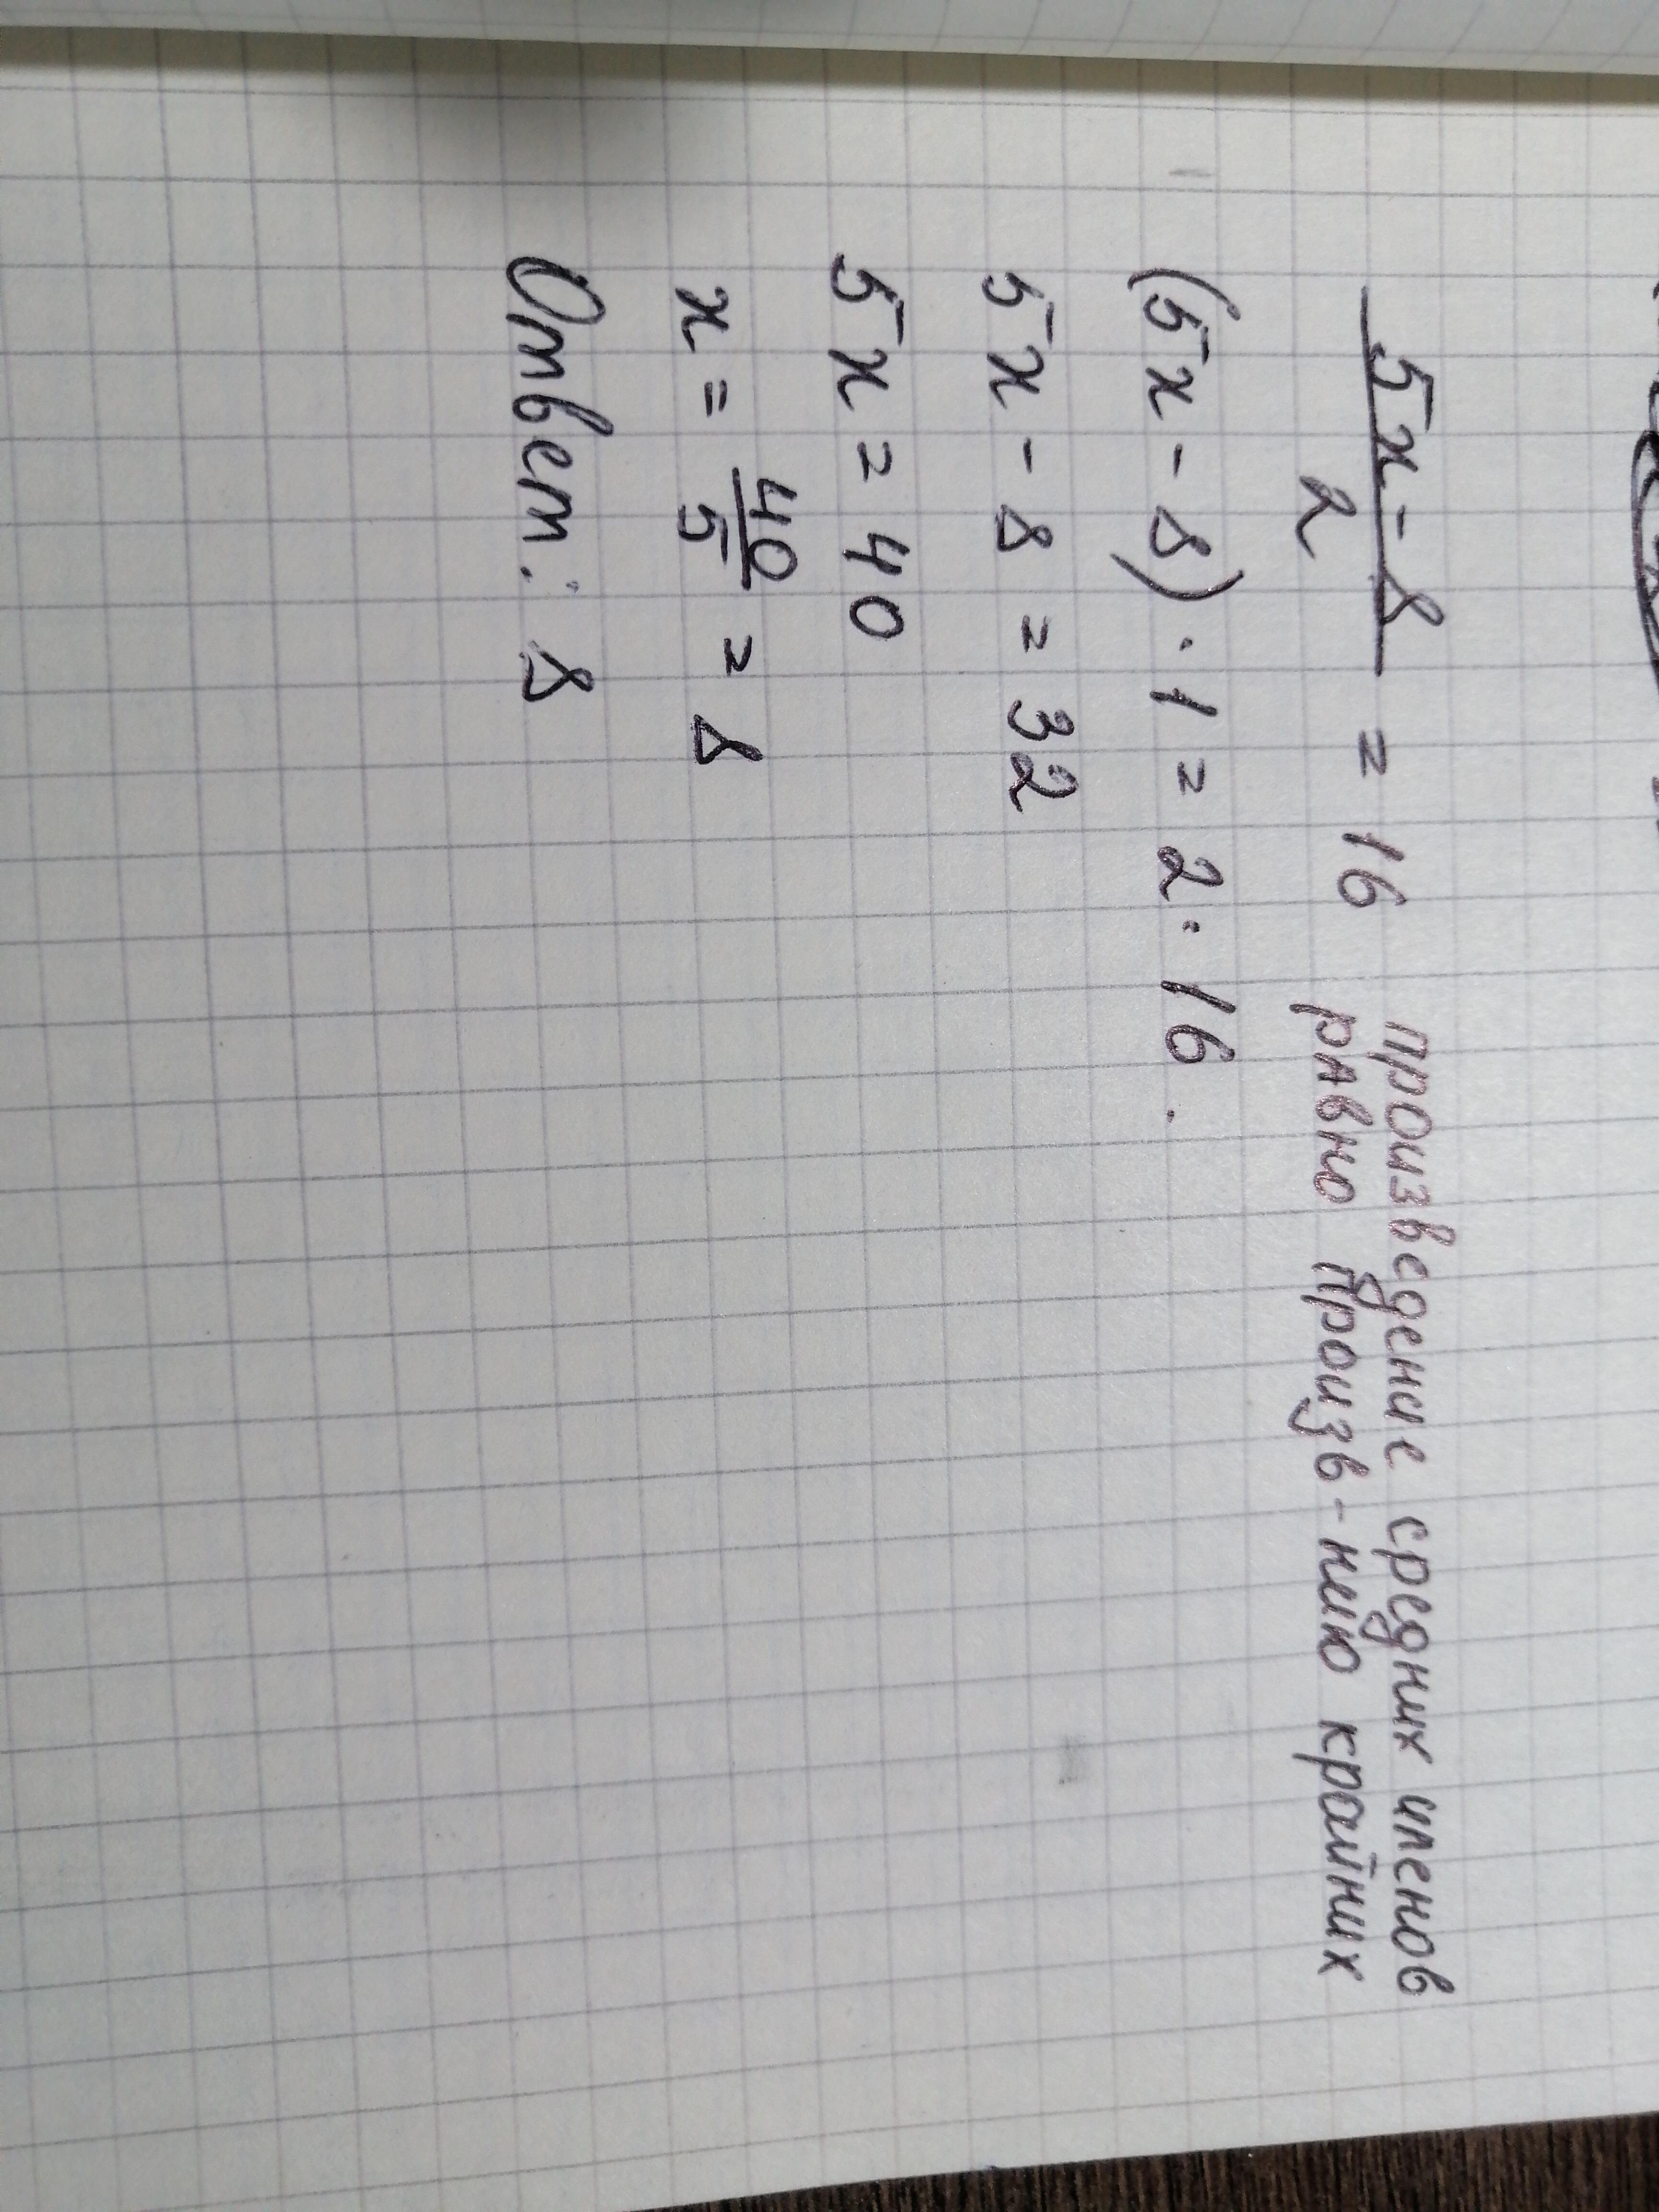 5x - 8 / 2 = 16 произведение средних членов
равно произв-нию крайних
(5x - 8) · 1 = 2 · 16.
5x - 8 = 32
5x = 40
x = 40/5 = 8
Ответ: 8